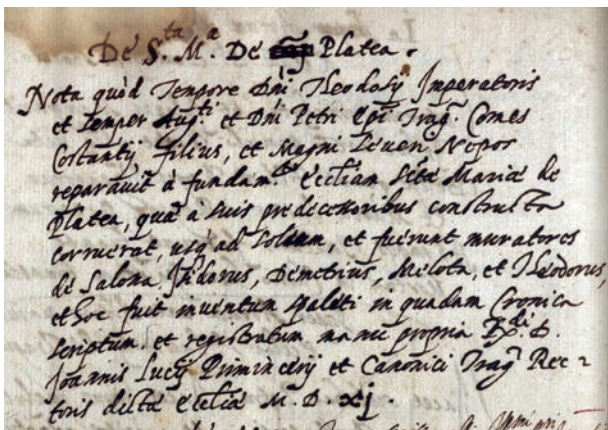 De S.ta M.a De Platea.
Nota quòd Tempore Dñi Theodosij Imperatoris
et semper Aug.ti et Dñi Petri Epĩ Trag.̃ Comes
Costantij filius, et Magni Seueri Nepos
reparauit à fundam.tis Ecc̃liam S̃ctæ Mariæ de
Platea, quæ à suis predecessoribus constructa
corruerat, usq; ad solum, et fuerunt muratores
de Salona Isidorus, Demetrius, Melota, et Theodorus,
et hoc fuit inuentum spaleti in quadam Cronica
scriptum, et registratum manu propria D.
Joannis Lucij Primincerij et Canonici Trag.̃ Rec=
toris dictæ Ecc̃liæ M. D. xj.